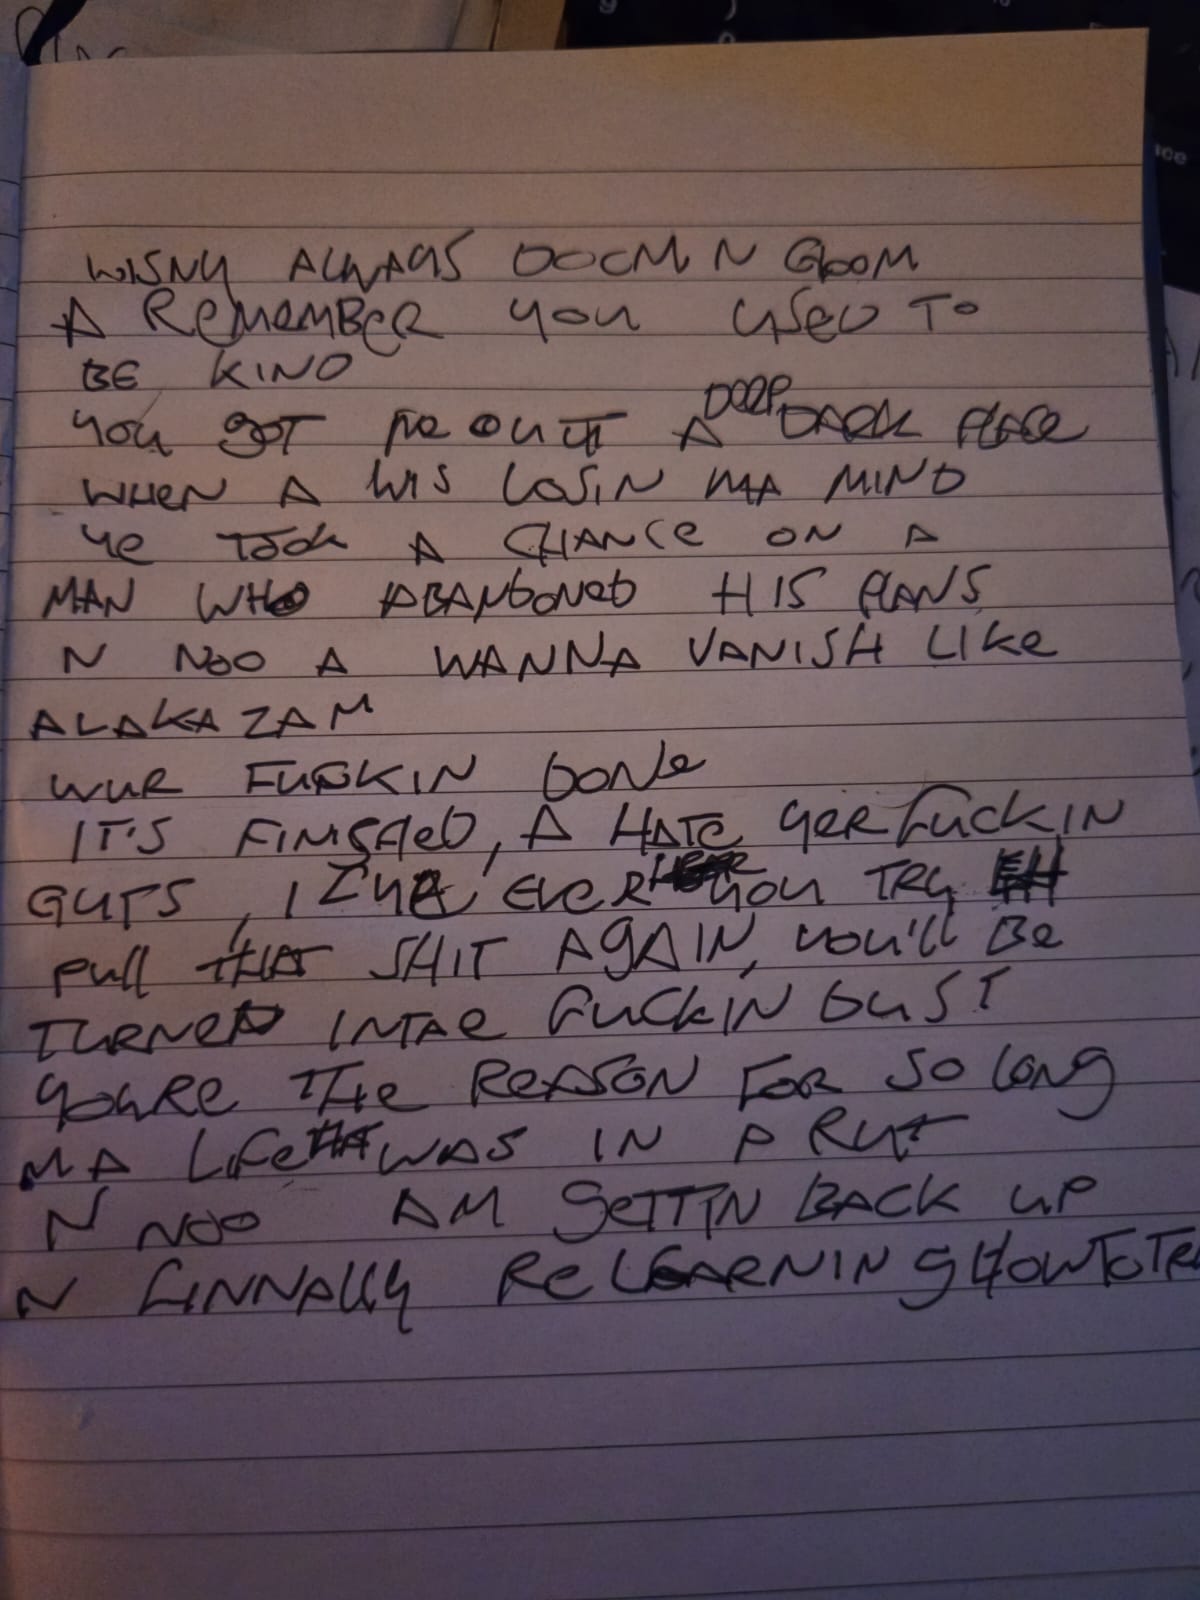 WISNY ALWAYS DOOM N GLOOM
A REMEMBER YOU USED TO
BE KIND
YOU GOT ME OUT A DEEP DARK PLACE
WHEN A WIS LOSIN MA MIND
YE TOOK A CHANCE ON A
MAN WHO ABANDONED HIS PLANS
N NOO A WANNA VANISH LIKE
ALAKAZAM
WUR FUCKIN DONE
IT'S FINISHED, A HATE YER FUCKIN
GUTS, EVER YOU TRY
PULL THAT SHIT AGAIN, YOU'LL BE
TURNED INTAE FUCKIN DUST
YOU'RE THE REASON FOR SO LONG
MA LIFE WAS IN A RUT
N NOO AM GETTIN BACK UP
N FINNALLY RELEARNING HOW TO